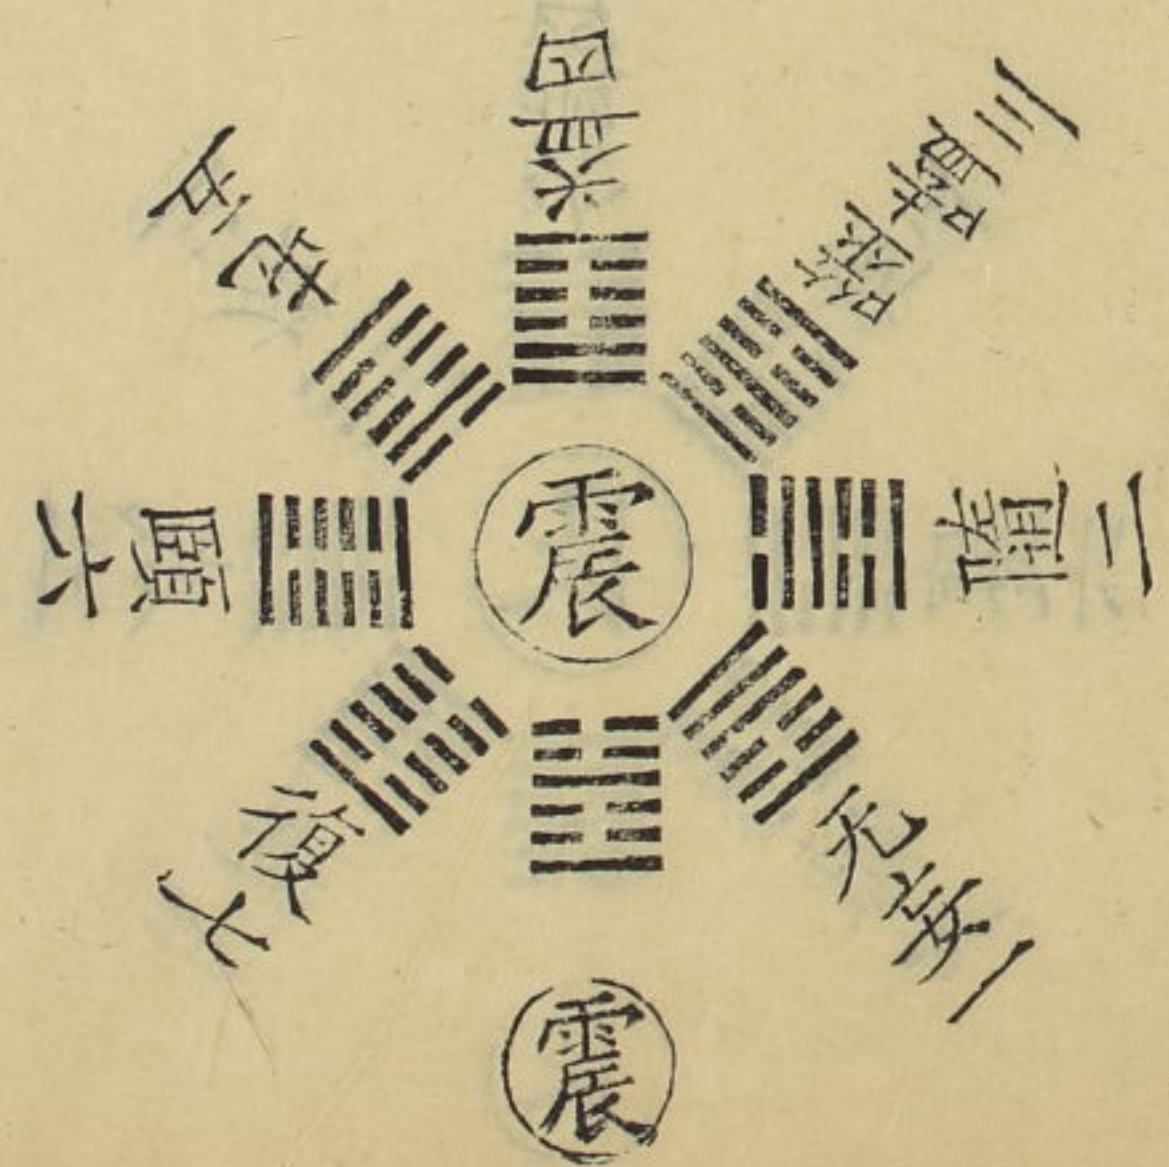 震
无妄一
隨二
噬嗑三
益四
屯五
頤六
復七
震